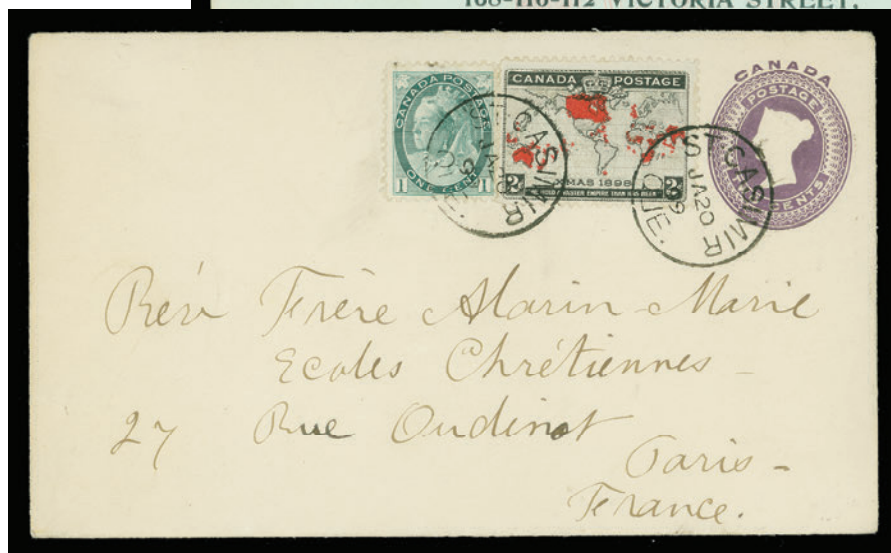 108-110-112 VICTORIA STREET,
CANADA POSTAGE
1 ONE CENT 1
CANADA POSTAGE
2 XMAS 1898 2
WE HOLD A VASTER EMPIRE THAN HAS BEEN
CANADA
POSTAGE
CENTS
ST CASIMIR
JA 20
9
QUE.
ST CASIMIR
JA 20
9
QUE.
Rév Frère Alarin-Marie
Ecoles Chrétiennes -
27 Rue Oudinot
Paris -
France.